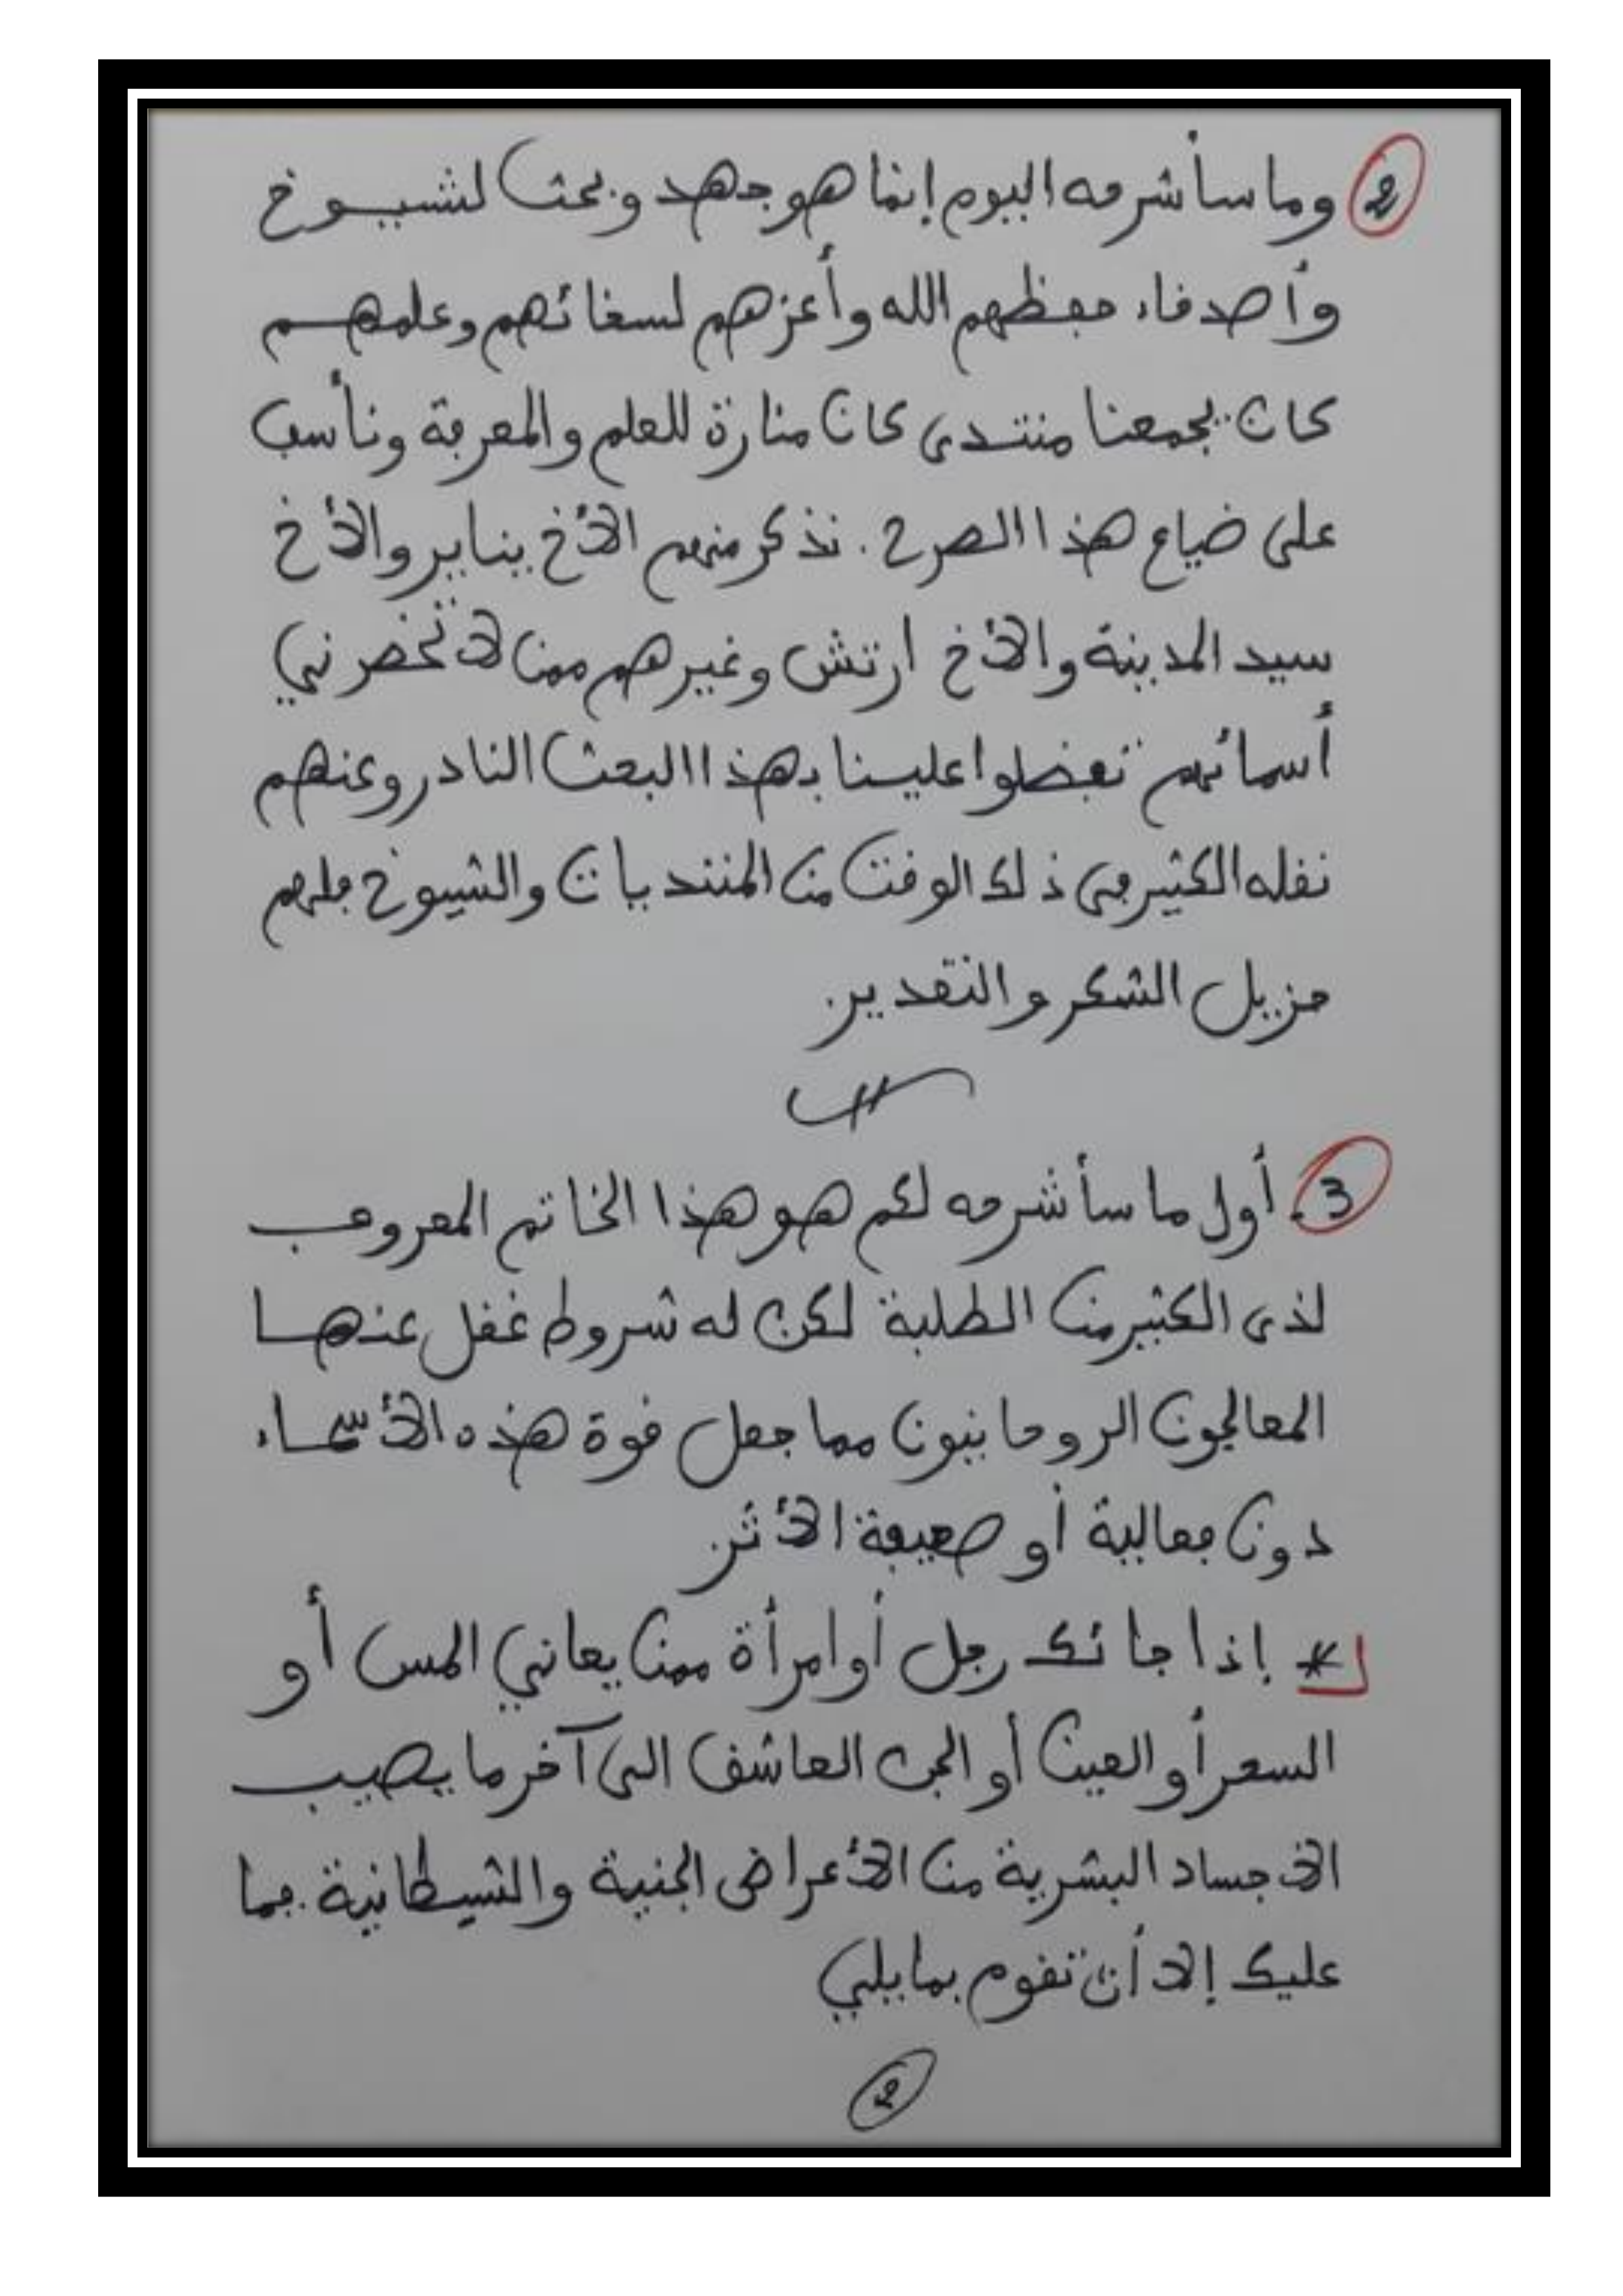 2 وما سأشرحه اليوم إنما هو جهد وبحث لشيوخ
وأصدقاء حفظهم الله وأعزهم لسخائهم وعلمهم
كان يجمعنا منتدى كان منارة للعلم والمعرفة ونأسف
على ضياع هذا الصرح . نذكر منهم الأخ يناير والأخ
سيد المدينة والأخ ارتش وغيرهم ممن لا تحضرني
أسمائهم تفضلوا علينا بهذا البحث النادر وعنهم
نقله الكثير في ذلك الوقت من المنتديات والشيوخ فلهم
جزيل الشكر والتقدير.
3. أول ما سأشرحه لكم هو هذا الخاتم المعروف
لذى الكثير من الطلبة لكن له شروط غفل عنها
المعالجون الروحانيون مما جعل قوة هذه الأسماء
دون فعالية أو ضعيفة الأثر
* إذا جائك رجل أو امرأة ممن يعاني المس أو
السحر أو العين أو الجن العاشق الى آخر ما يصيب
الاجساد البشرية من الأعراض الجنية والشيطانية. فما
عليك إلا أن تقوم بما يلي
2